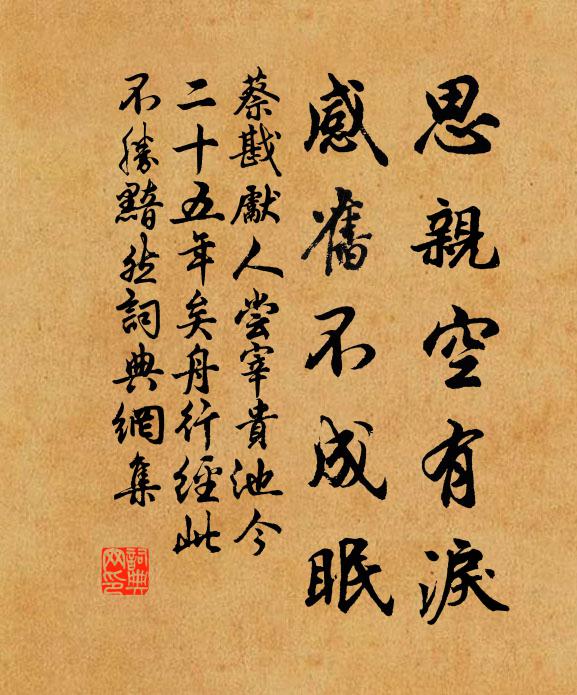 思親空有淚
感奮不成眠
蔡戡獻人嘗宰貴池今
二十五年矣舟行經此
不勝黯然詞典網集
詞典
网印